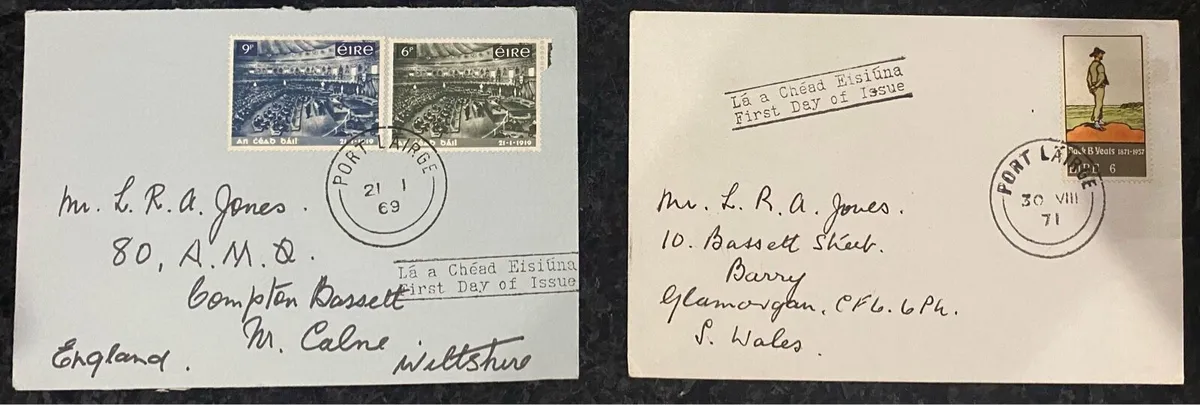 9P éire
6P éire
An céad dáil 21·1·1919
21·1·1919
PORT LÁIRGE
21 I
69
Mr. L. R. A. Jones.
80, A. M. Q.
Compton Bassett
Nr. Calne
Wiltshire
England.
Lá a Chéad Eisiúna
First Day of Issue
Lá a Chéad Eisiúna
First Day of Issue
Jack B Yeats 1871-1957
EIRE 6
PORT LÁIRGE
30 VIII
71
Mr. L. R. A. Jones.
10. Bassett Street.
Barry
Glamorgan, CF6. 6PL.
S. Wales.